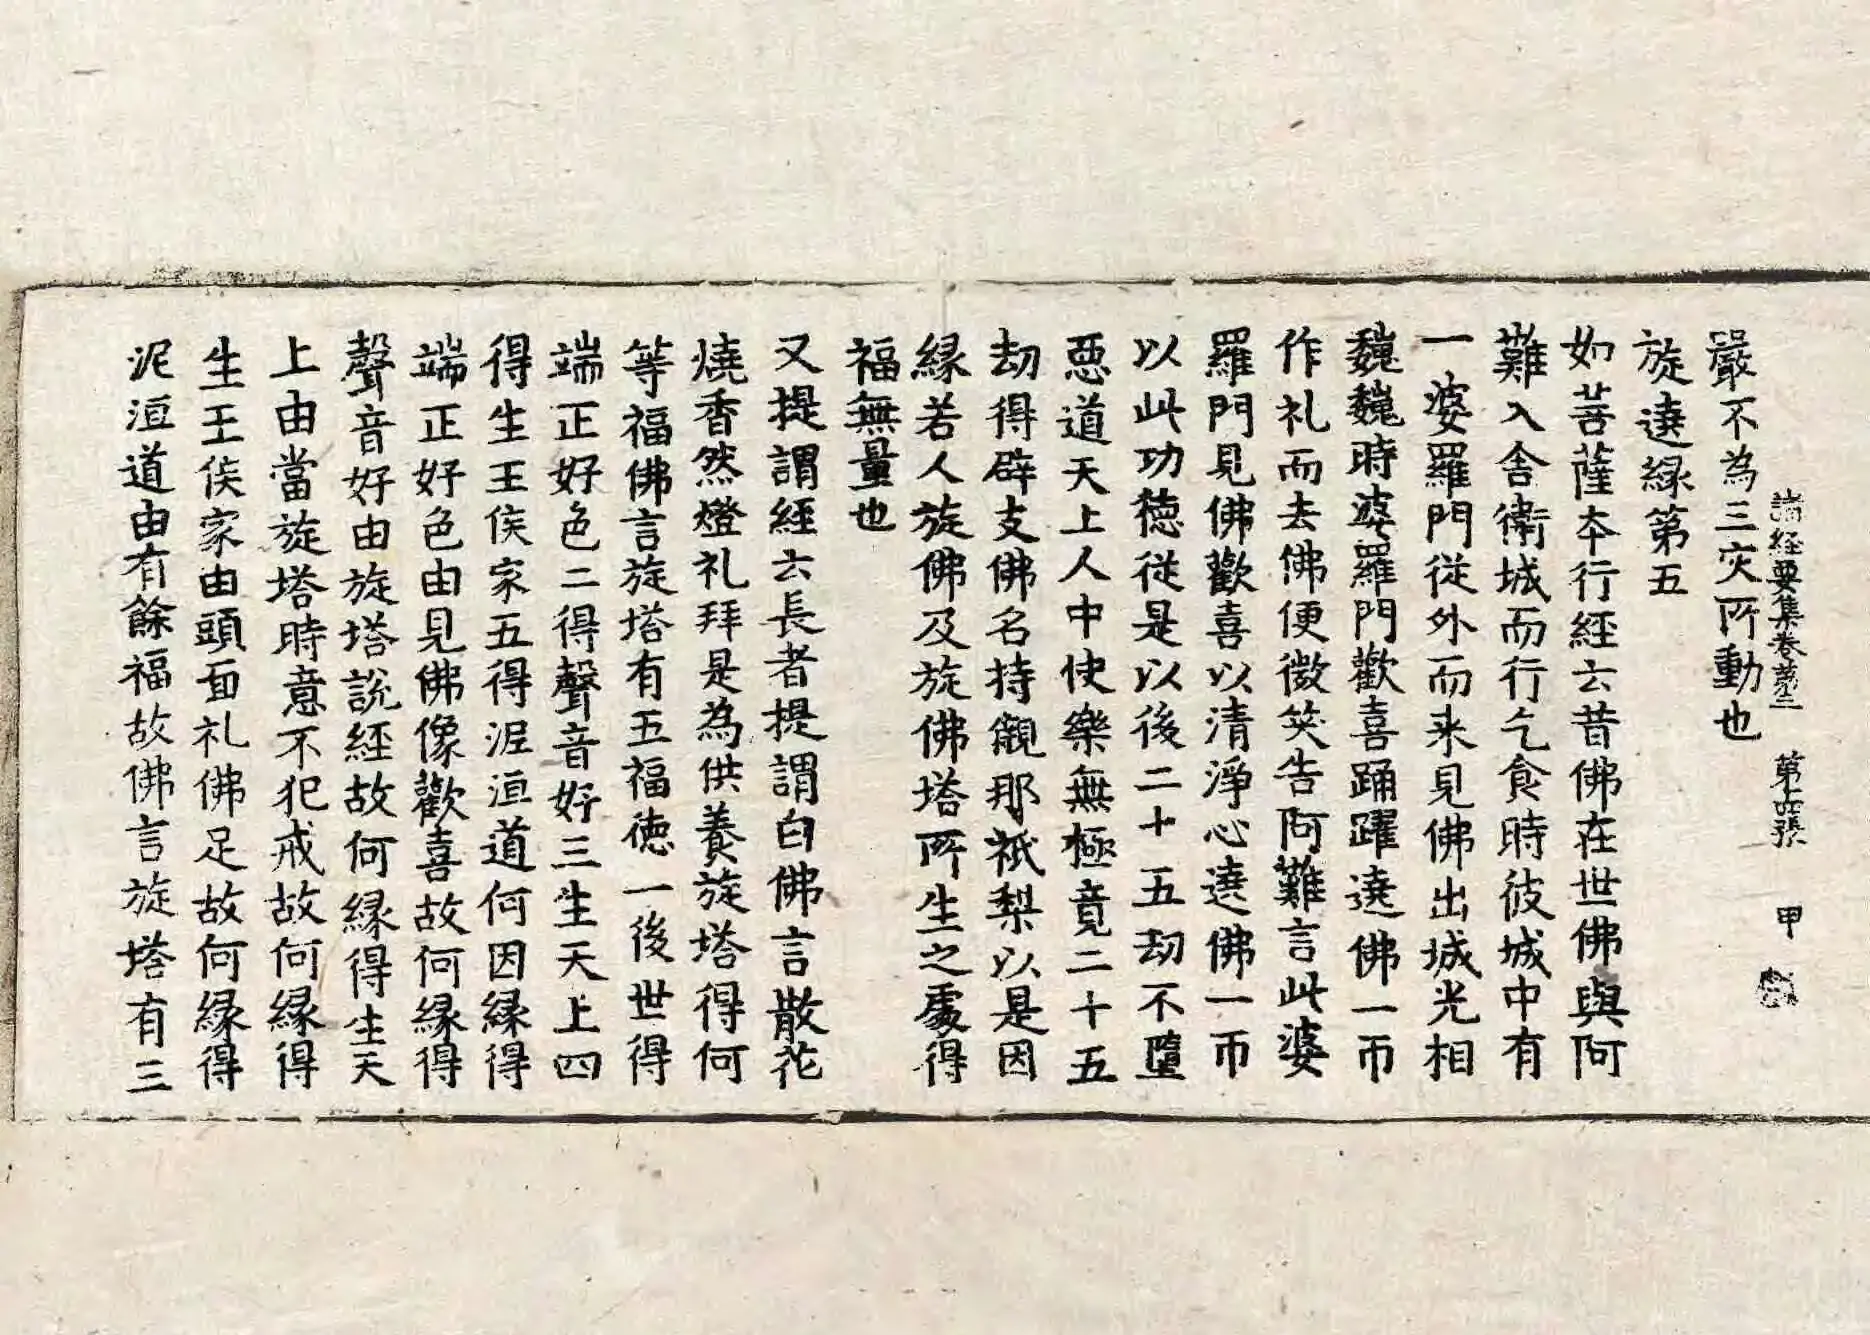 諸経要集卷第三 第十四張 甲
嚴不為三灾所動也
旋遶緣第五
如菩薩本行経云昔佛在世佛與阿
難入舍衛城而行乞食時彼城中有
一婆羅門従外而来見佛出城光相
巍巍時婆羅門歡喜踊躍遶佛一帀
作礼而去佛便微笑告阿難言此婆
羅門見佛歡喜以清淨心遶佛一帀
以此功徳従是以後二十五劫不墮
惡道天上人中快樂無極竟二十五
劫得辟支佛名持覼那祇梨以是因
緣若人旋佛及旋佛塔所生之處得
福無量也
又提謂経云長者提謂白佛言散花
燒香然燈礼拜是為供養旋塔得何
等福佛言旋塔有五福徳一後世得
端正好色二得聲音好三生天上四
得生王侯家五得泥洹道何因緣得
端正好色由見佛像歡喜故何緣得
聲音好由旋塔說経故何緣得生天
上由當旋塔時意不犯戒故何緣得
生王侯家由頭面礼佛足故何緣得
泥洹道由有餘福故佛言旋塔有三